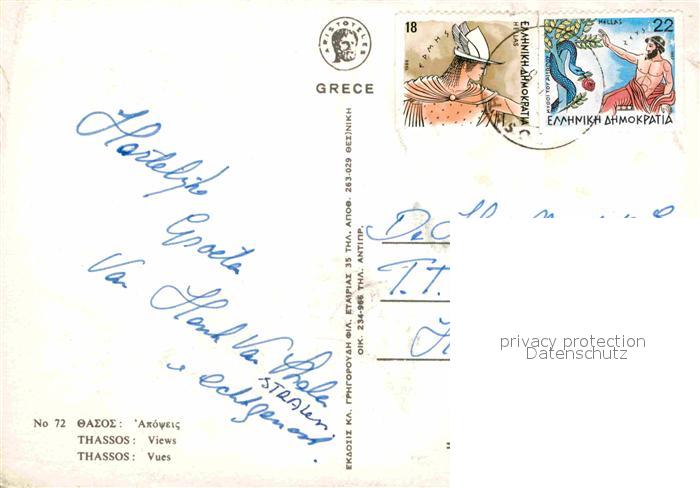 ARISTOTELES
GRECE
18
ΕΡΜΗΣ
1986
ΕΛΛΗΝΙΚΗ ΔΗΜΟΚΡΑΤΙΑ
HELLAS
HELLAS
22
ΕΛΛΗΝΙΚΗ ΔΗΜΟΚΡΑΤΙΑ
Hartelijke
Groeten
Van Henk Van
STRALEN
e echtgenoot.
De
T.T.
ΕΚΔΟΣΙΣ ΚΛ. ΓΡΗΓΟΡΟΥΔΗ ΦΙΛ. ΕΤΑΙΡΙΑΣ 35 ΤΗΛ. ΑΠΟΘ. 263-029 ΘΕΣ)ΝΙΚΗ
ΟΙΚ. 234-966 ΤΗΛ. ΑΝΤΙΠΡ.
privacy protection
Datenschutz
No 72 ΘΑΣΟΣ: Ἀπόψεις
THASSOS: Views
THASSOS: Vues